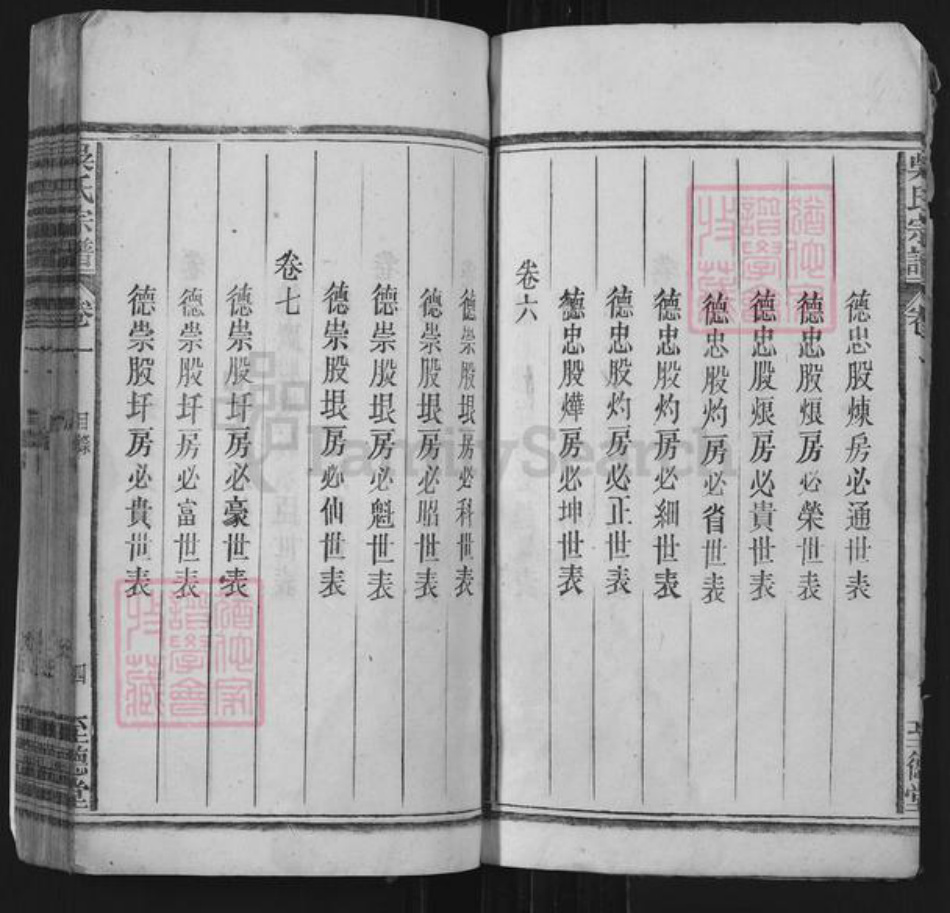 吳氏宗譜
卷
德忠股煉房必通世表
德忠股烺房必榮世表
德忠股烺房必貴世表
德忠股灼房必省世表
德忠股灼房必細世表
德忠股灼房必正世表
德忠股燁房必坤世表
卷六
德崇股垠房必科世表
德崇股垠房必昭世表
德崇股垠房必魁世表
德崇股垠房必仙世表
卷七
德崇股圩房必豪世表
德崇股圩房必富世表
德崇股圩房必貴世表
吳氏宗譜
卷一
目錄
四
至德堂
至德堂
猶他家譜學會收藏
猶他家譜學會收藏
FamilySearch